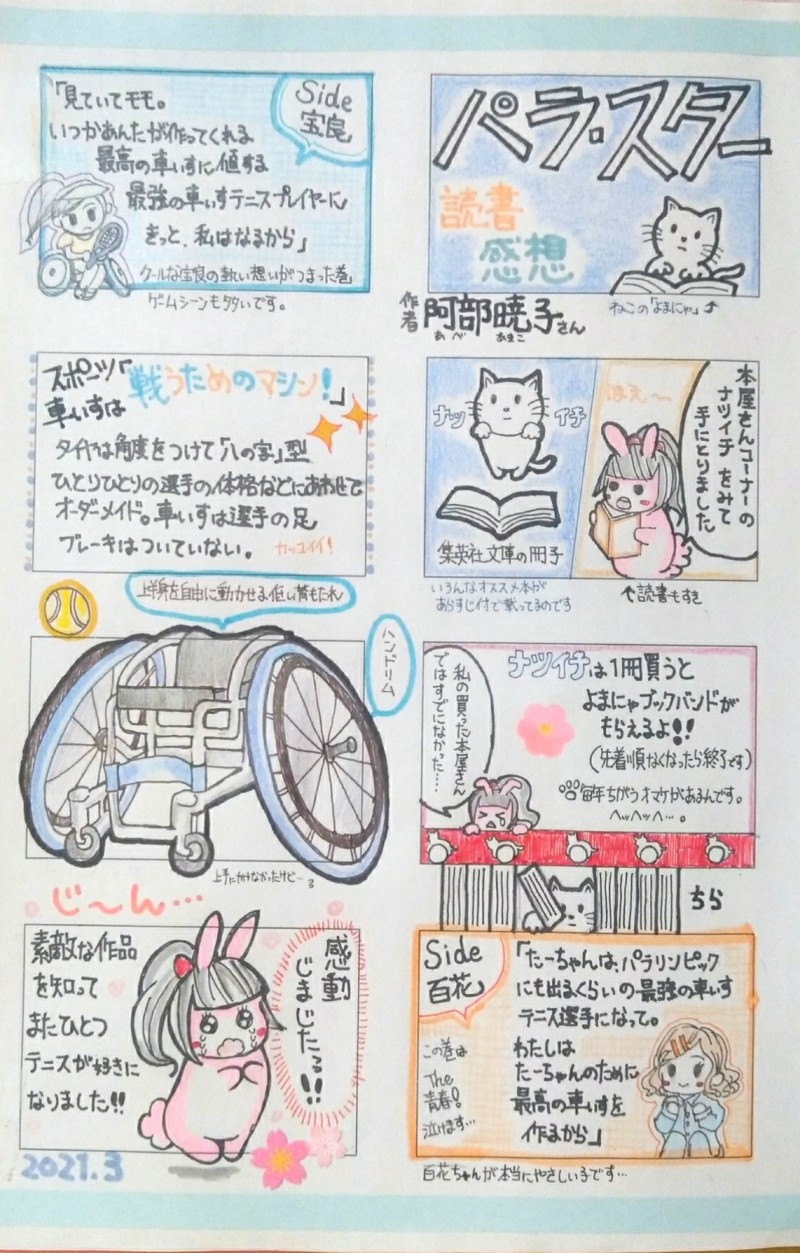 パラ・スター
読書
感想
作者 阿部暁子さん
あべ あきこ
ねこの「よまにゃ」↗
本屋さんコーナーの
ナツイチをみて
手にとりました
ほぇ〜
ナツ イチ
集英社文庫の冊子
いろんなオススメ本が
あらすじ付で載ってるのです
↑読書もすき
ナツイチは1冊買うと
よまにゃブックバンドが
もらえるよ!!
(先着順なくなったら終了です)
毎年ちがうオマケがあるんです。
ヘッヘッヘ…。
私の買った本屋さん
ではすでになかった……
ちら
Side
百花
「たーちゃんは、パラリンピック
にも出るくらいの最強の車いす
テニス選手になって。
わたしは
たーちゃんのために
最高の車いすを
作るから」
この巻は
The
青春!
泣けます…
百花ちゃんが本当にやさしい子です…
Side
宝良
「見ていてモモ。
いつかあんたが作ってくれる
最高の車いすに値する
最強の車いすテニスプレイヤーに
きっと、私はなるから」
クールな宝良の熱い想いがつまった巻
ゲームシーンも多いです。
スポーツ
車いすは
「戦うためのマシン!」
タイヤは角度をつけて「八の字」型
ひとりひとりの選手の体格などにあわせて
オーダーメイド。車いすは選手の足
ブレーキはついていない。
カッコイイ!
上半身を自由に動かせる低い背もたれ
ハンドリム
上手にかけなかったけど…
じ〜ん…
素敵な作品
を知って
またひとつ
テニスが好きに
なりました!!
感動
じまじたっ!!
2021.3